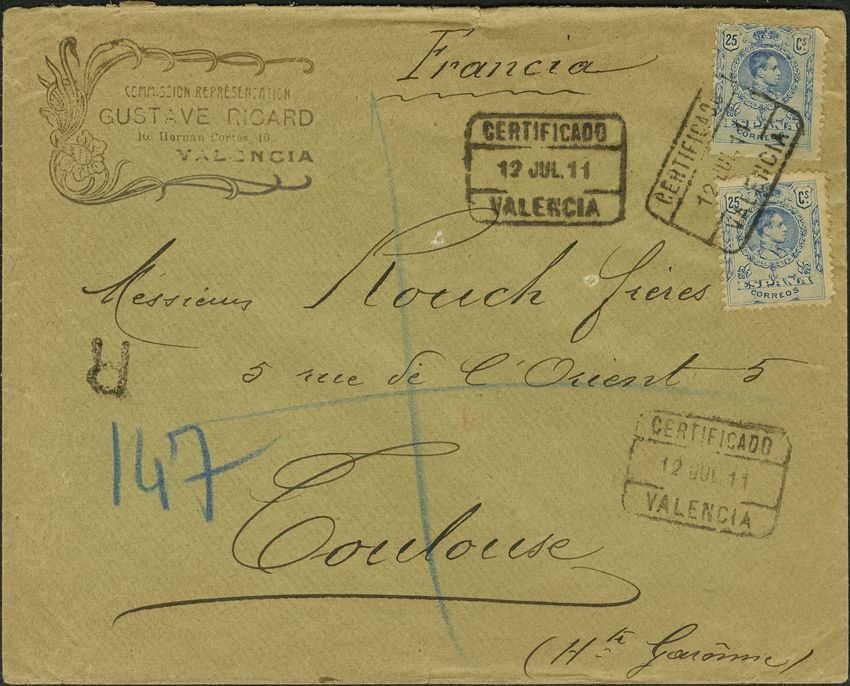 Francia
COMMISSION REPRÉSENTATION
GUSTAVE RICARD
10. Hernan Cortés, 10.
VALENCIA
CERTIFICADO
12 JUL. 11
VALENCIA
CERTIFICADO
12 JUL. 11
VALENCIA
25 Cs
CORREOS
25 Cs
CORREOS
Messieurs Rouch frères
5 rue de l'Orient 5
R
147
CERTIFICADO
12 JUL. 11
VALENCIA
Toulouse
(Hte Garonne)